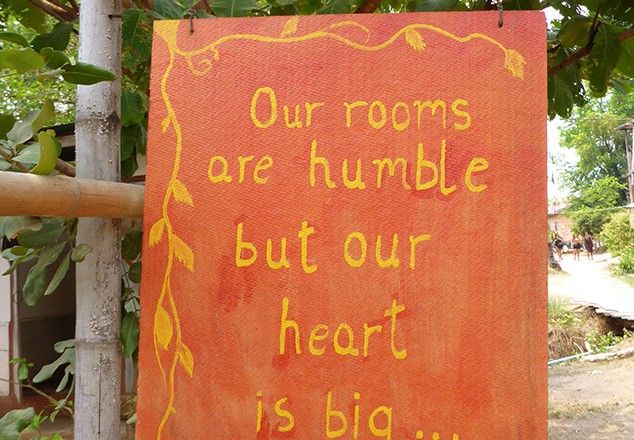 Our rooms
are humble
but our
heart
is big...